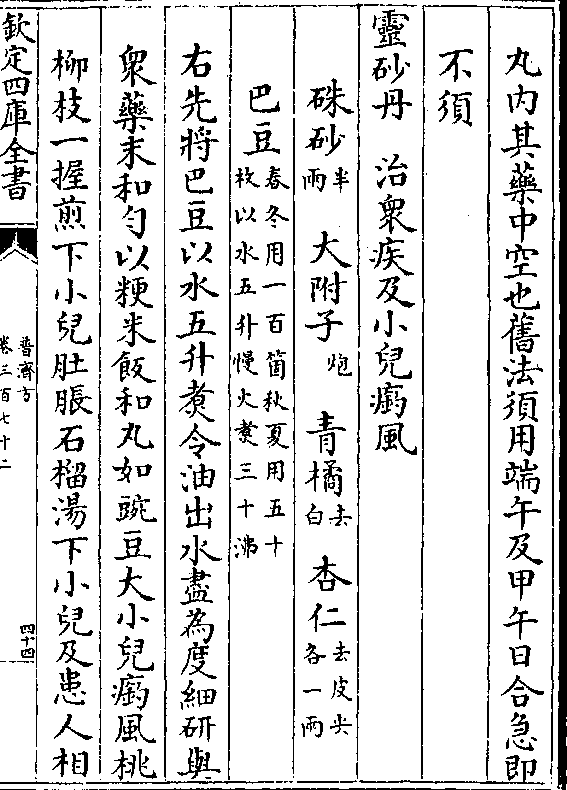 丸内其藥中空也舊法須用端午及甲午日合急即
不須
靈砂丹　治衆疾及小兒癎風
硃砂半兩　大附子炮　青橘去白　杏仁去皮尖各一兩
巴豆春冬用一百箇秋夏用五十枚以水五升慢火煑三十沸
右先將巴豆以水五升煑令油出水盡為度細研與
衆藥末和勻以粳米飯和丸如豌豆大小兒癎風桃
柳枝一握煎下小兒肚脹石榴湯下小兒及患人相
欽定四庫全書
普濟方
卷三百七十二
四十四